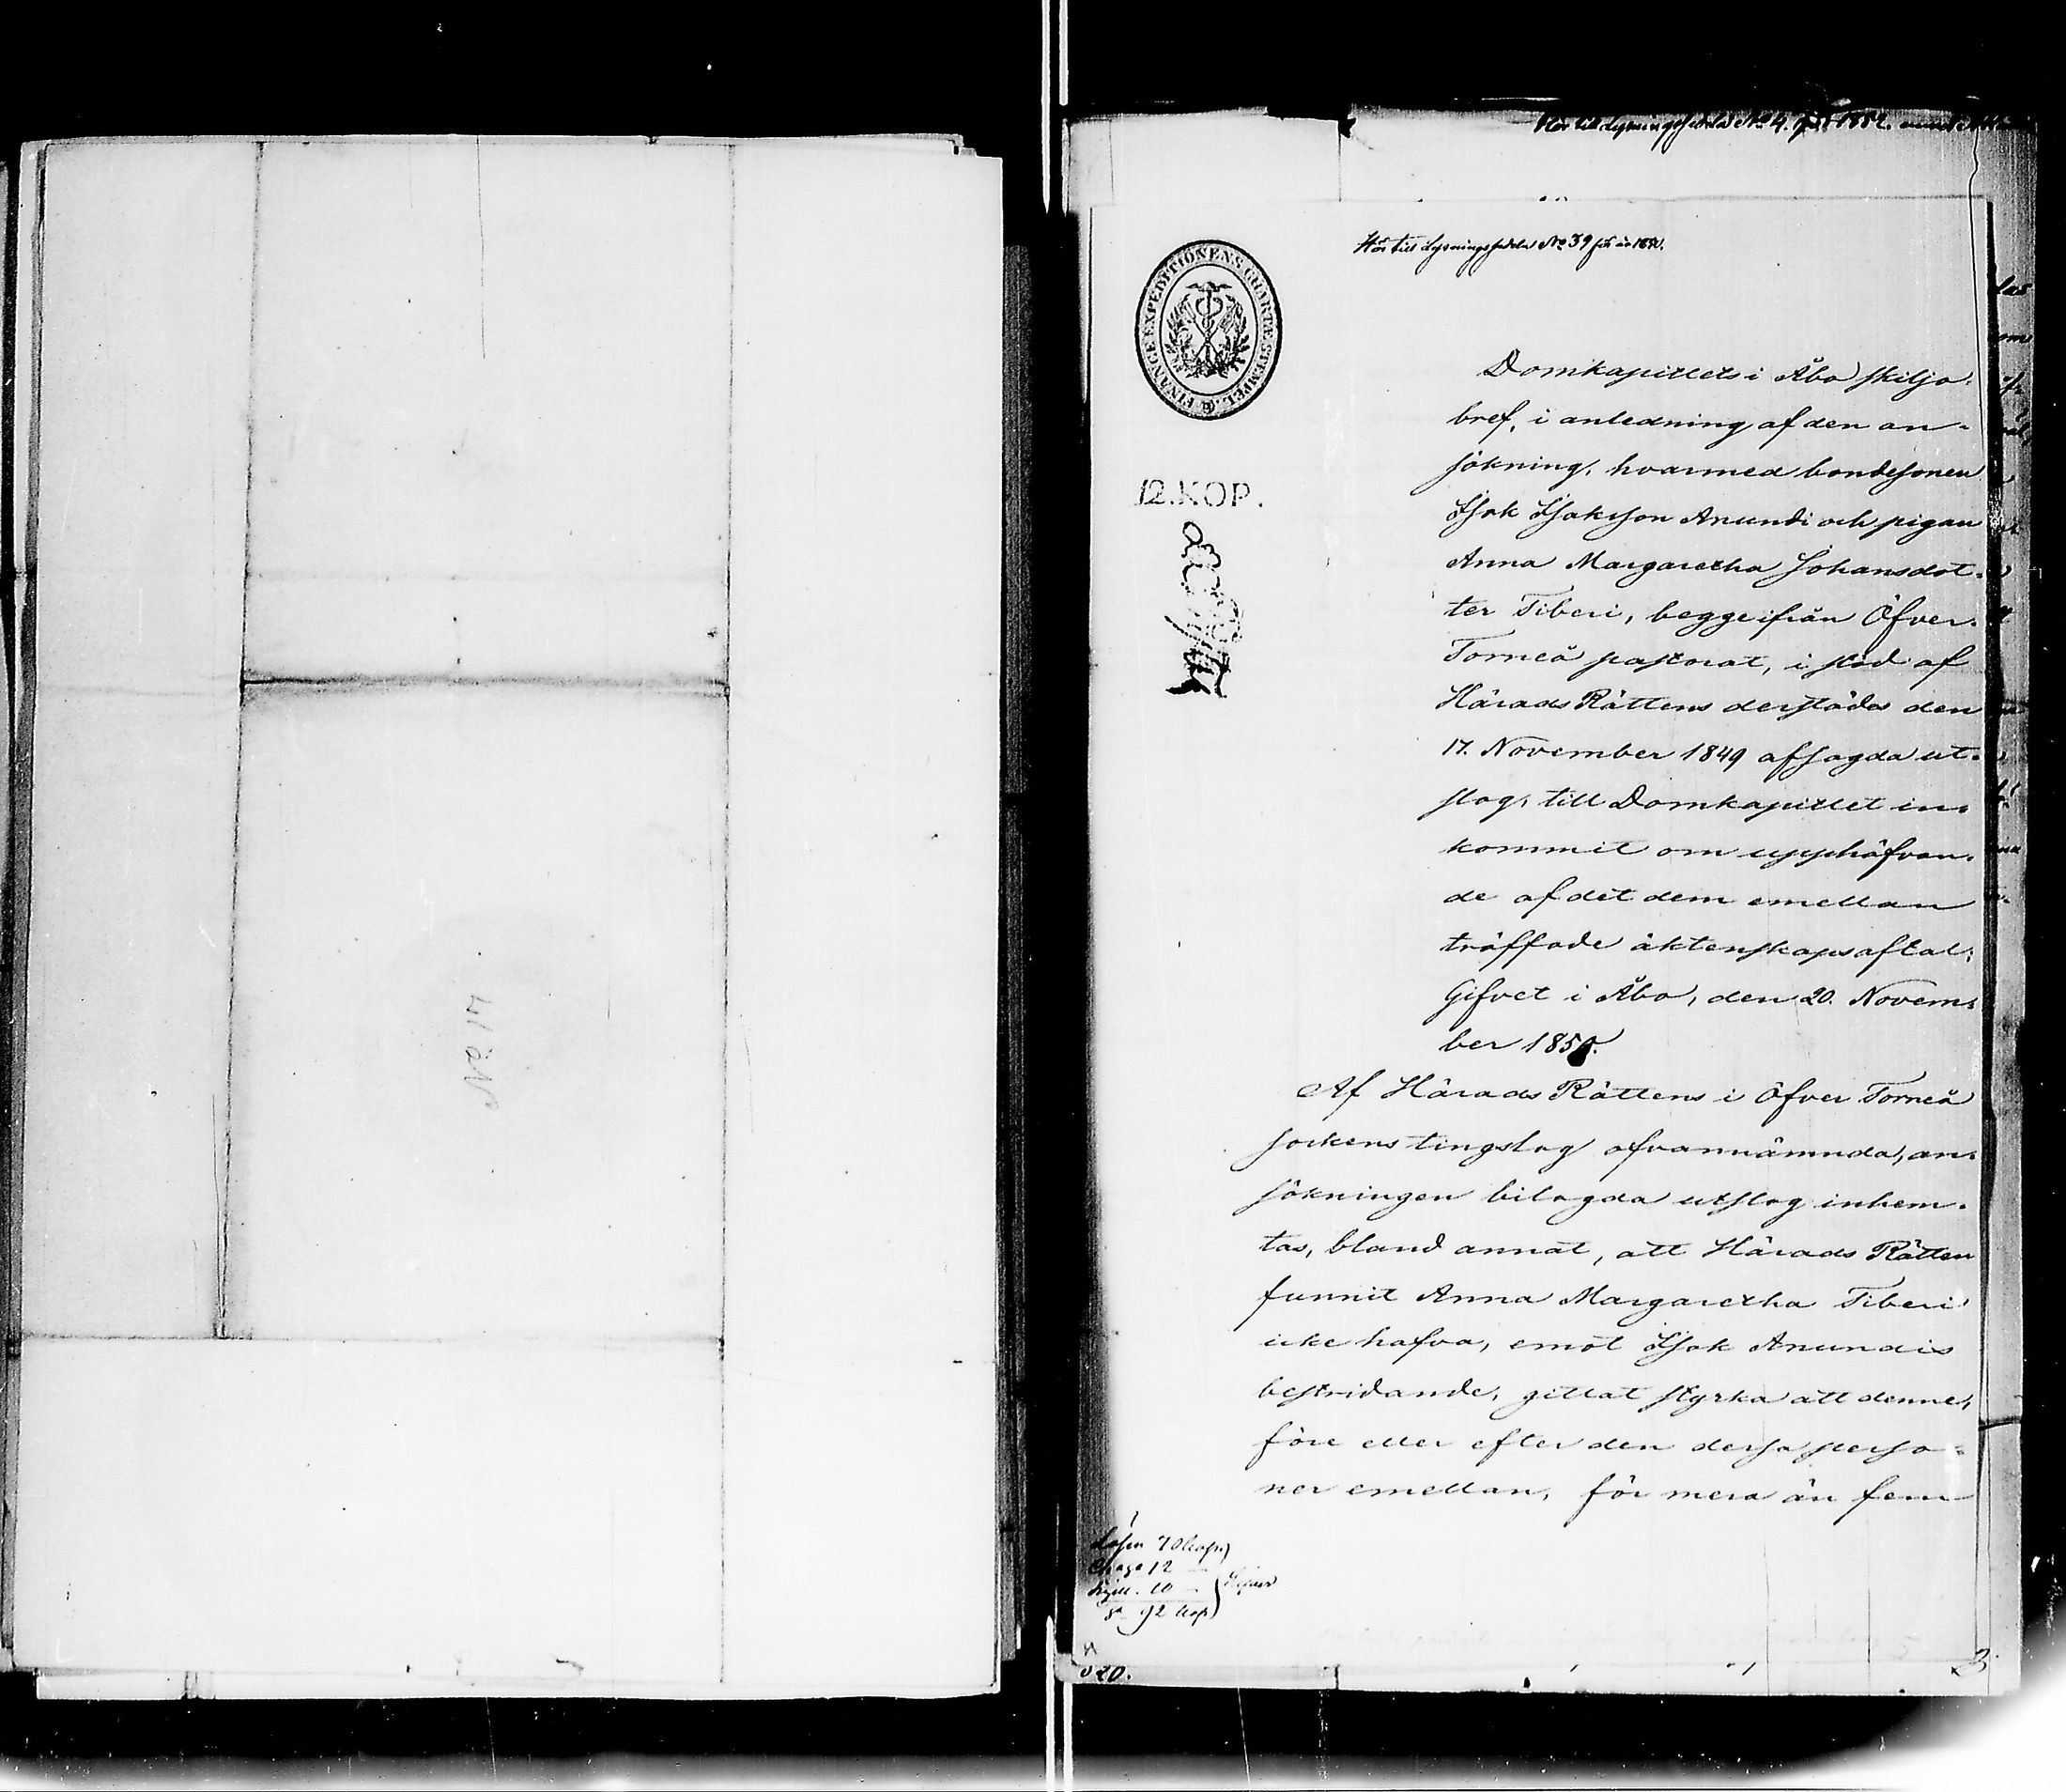 Hör till Lysningssedeln No 4. för 1852.
Hör till Lysningssedel No 39 för år 1850.
FINANCE EXPEDITIONENS CHARTÆ STEMPEL
12. KOP.
Domkapitlets i Åbo skiljo-
bref, i anledning af den an-
sökning, hvarmed bondesonen
Isak Isaksson Anundi och pigan
Anna Margaretha Johansdot-
ter Tiberi, begge ifrån Öfver-
Torneå pastorat, i stöd af
Härads Rättens derstädes den
17. November 1849 afsagda ut-
slag, till Domkapitlet in-
kommit om upphäfvan-
de af det dem emellan
träffade äktenskapsaftal;
Gifvet i Åbo, den 20. Novem-
ber 1850.
Af Härads Rättens i Öfver Torneå
sockens tingslag ofvannämnda, an-
sökningen bilagda utslag inhem-
tas, bland annat, att Härads Rätten
funnit Anna Margaretha Tiberi
icke hafva, emot Isak Anundis
bestridande, gittat styrka att denne,
före eller efter den dessa perso-
ner emellan, för mera än fem
Lösen 70 kop.
Charta 12 —
Sigill. 10 —
Sa 92 kop.
3